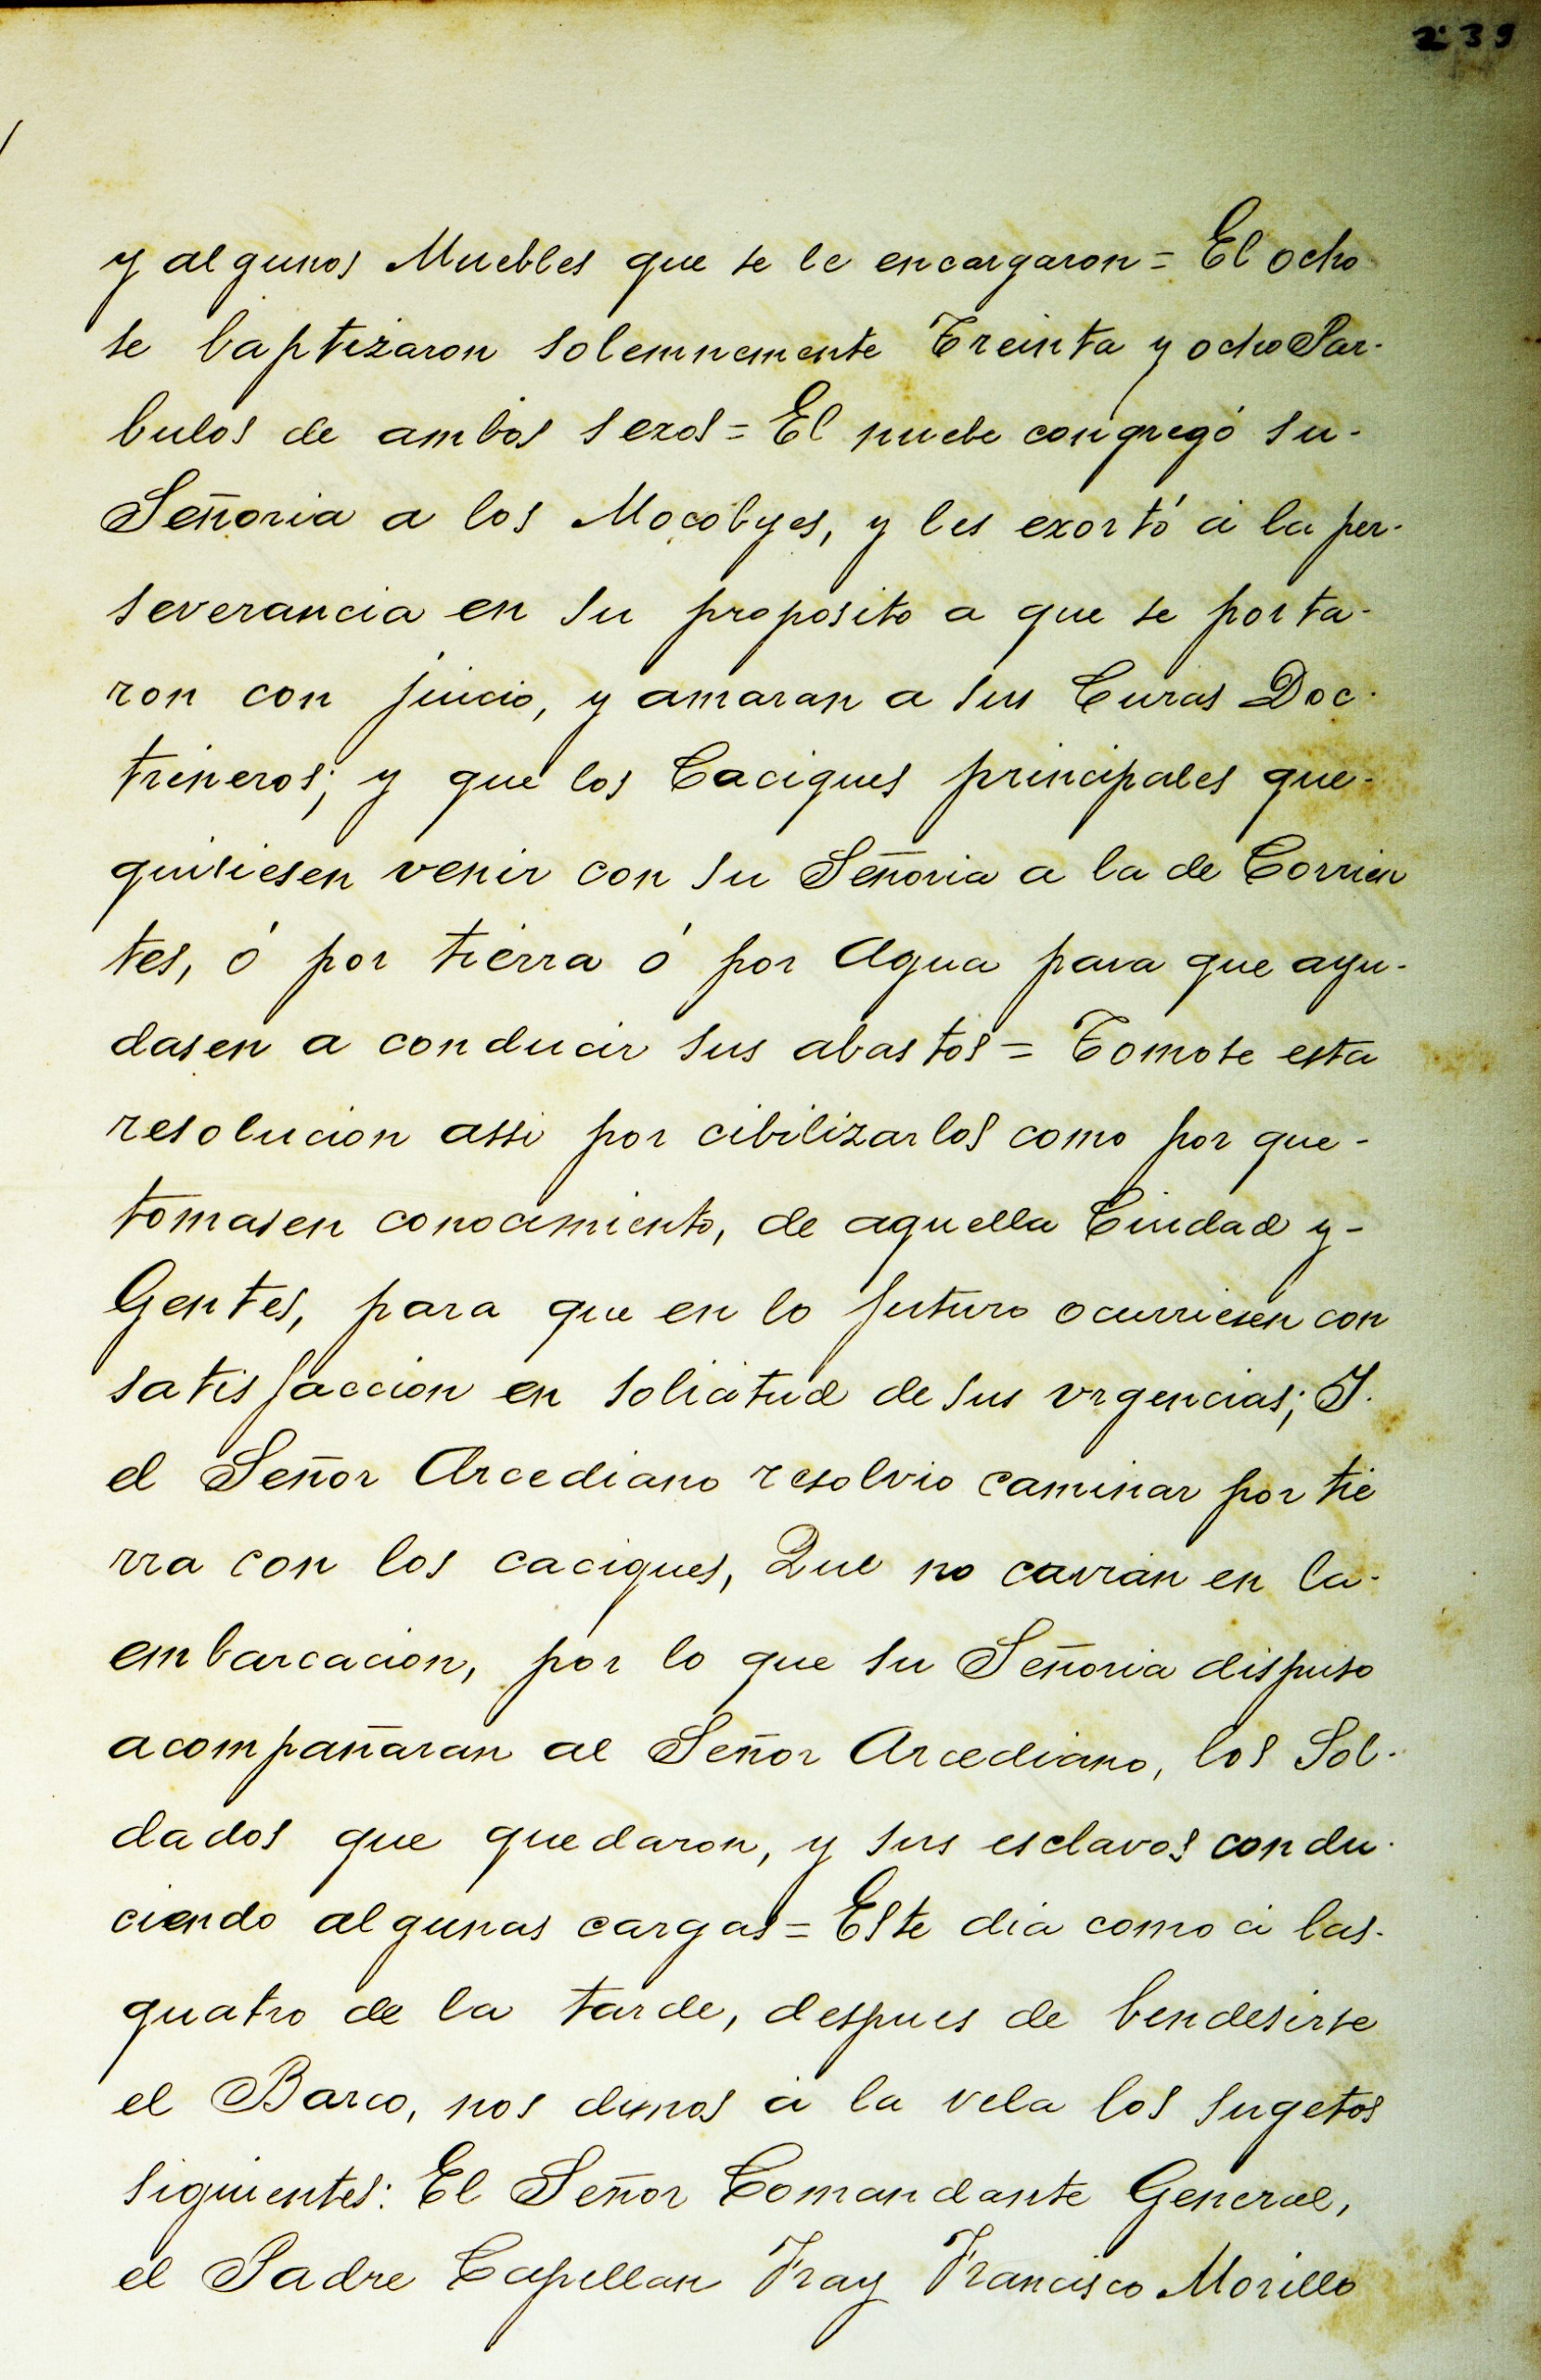 239
y algunos Muebles que se le encargaron = El ocho
se baptizaron solemnemente Treinta y ocho Par-
bulos de ambos sexos = El nuebe congregó su-
Señoria a los Mocobyes, y les exortó á la per-
severancia en su proposito a que se porta-
ron con juicio, y amaran a sus Curas Doc-
trineros; y que los Caciques principales que-
quisiesen venir con su Señoria a la de Corrien
tes, ó por tierra ó por Agua para que ayu-
dasen a conducir sus abastos = Tomose esta
resolucion assi por cibilizarlos como por que-
tomasen conocimiento, de aquella Ciudad y-
Gentes, para que en lo futuro ocurriesen con
satisfaccion en solicitud de sus vrgencias; Y.
el Señor Arcediano resolvio caminar por tie
rra con los caciques, Que no cavian en la-
embarcacion, por lo que su Señoria dispuso
acompañaran al Señor Arcediano, los Sol-
dados que quedaron, y sus esclavos condu-
ciendo algunas cargas = Este dia como á las-
quatro de la tarde, despues de bendesirse
el Barco, nos dimos á la vela los sugetos
siguientes: El Señor Comandante General,
el Padre Capellan Fray Francisco Morillo